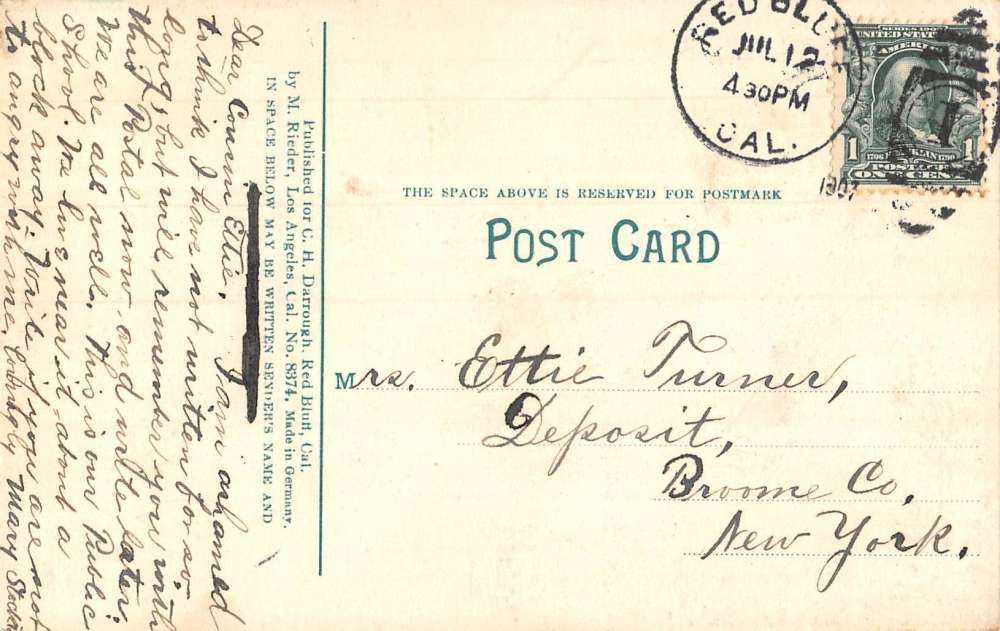 Dear Cousin Ettie. I am ashamed
to think I have not written for so
long, but will remember you with
this Postal now and write later.
We are all well. This is our Public
School. We live near it, about a
block away. Write if you are not
to angry with me, Lovingly Mary
Published for C. H. Darrough, Red Bluff, Cal.
by M. Rieder, Los Angeles, Cal. No. 8974. Made in Germany.
IN SPACE BELOW MAY BE WRITTEN SENDER'S NAME AND
RED BLUFF
JUL 12
4 30 PM
CAL.
SERIES 1902
UNITED STATES OF
AMERICA
1
1706 FRANKLIN 1790
1
POSTAGE
ONE CENT
1
THE SPACE ABOVE IS RESERVED FOR POSTMARK
POST CARD
Mrs. Ettie Turner,
Deposit,
Broome Co.
New York.